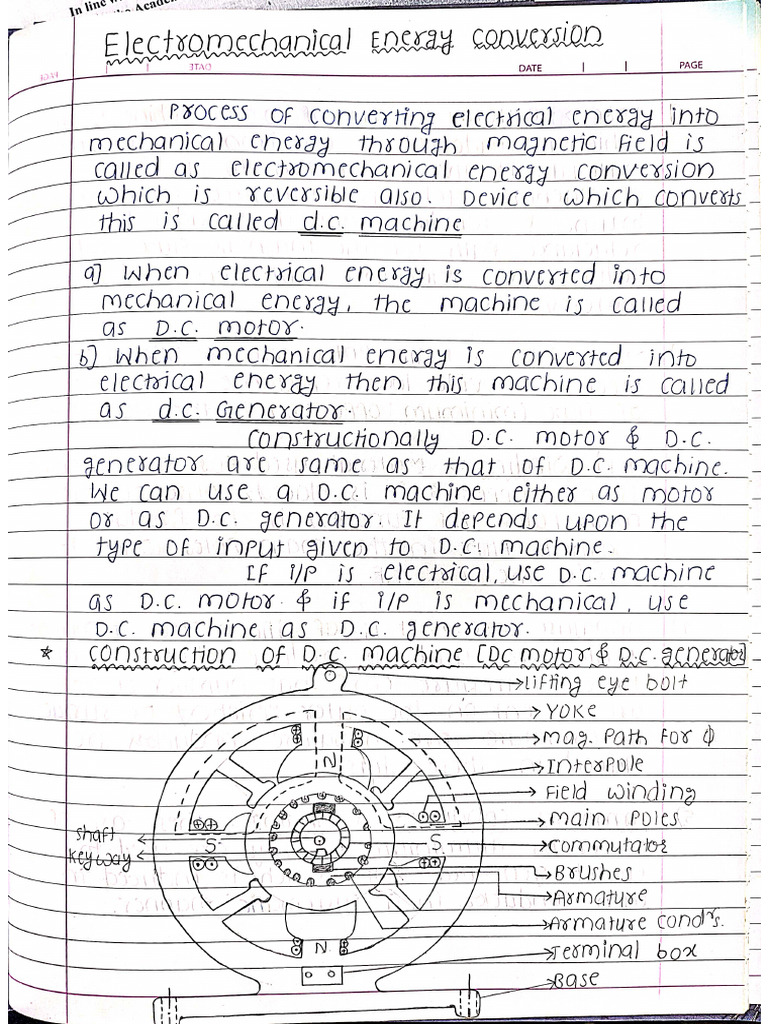 In line
the Academ
Electromechanical Energy Conversion
DATE
PAGE
Process of converting electrical energy into
mechanical energy through magnetic field is
called as electromechanical energy conversion
which is reversible also. Device which converts
this is called d.c. machine
a] when electrical energy is converted into
mechanical energy, the machine is called
as D.C. motor.
b] when mechanical energy is converted into
electrical energy then this machine is called
as d.c. Generator.
Constructionally D.C. motor & D.C.
generator are same as that of D.C. machine.
We can use a D.C. machine either as motor
or as D.C. generator. It depends upon the
type of input given to D.C. machine.
If i/p is electrical, use D.C. machine
as D.C. motor & if i/p is mechanical, use
D.C. machine as D.C. generator.
* Construction of D.C. machine [DC motor & D.C. generator]
lifting eye bolt
YOKE
Mag. Path For ϕ
Interpole
Field winding
main poles
commutator
Brushes
Armature
Armature condrs.
Terminal box
Base
shaft
key way
N
S
S
N